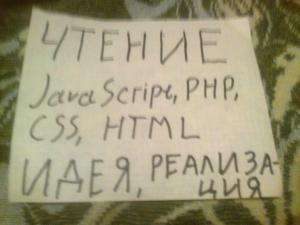 ЧТЕНИЕ
JavaScript, PHP,
CSS, HTML
ИДЕЯ, РЕАЛИЗА-
ЦИЯ